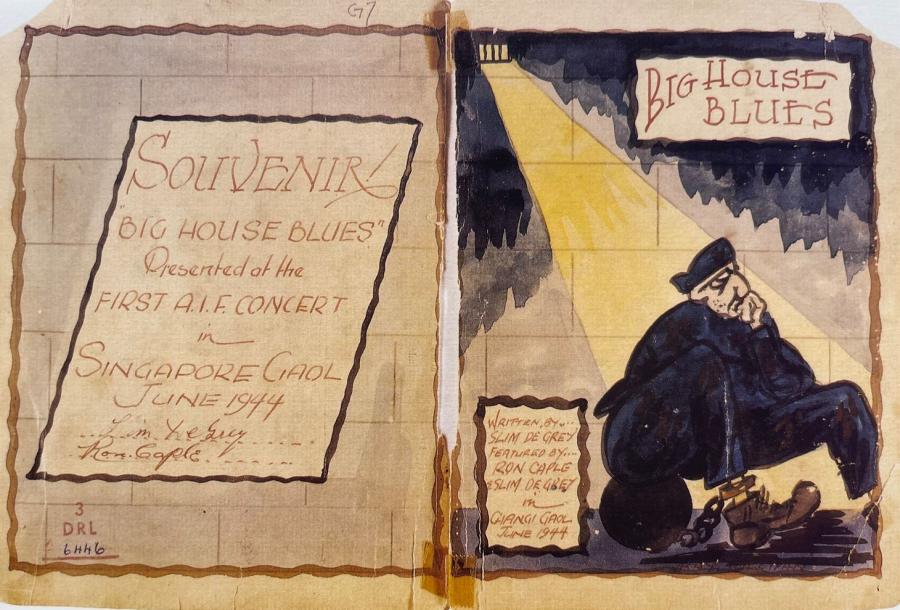 G7
SOUVENIR!
"BIG HOUSE BLUES"
Presented at the
FIRST A.I.F. CONCERT
in
SINGAPORE GAOL
JUNE 1944
Slim De Grey
Ron. Caple
3
DRL
6446
BIG HOUSE
BLUES
WRITTEN, BY....
SLIM DE GREY
FEATURED BY....
RON CAPLE
& SLIM DE GREY
in
CHANGI GAOL
JUNE 1944